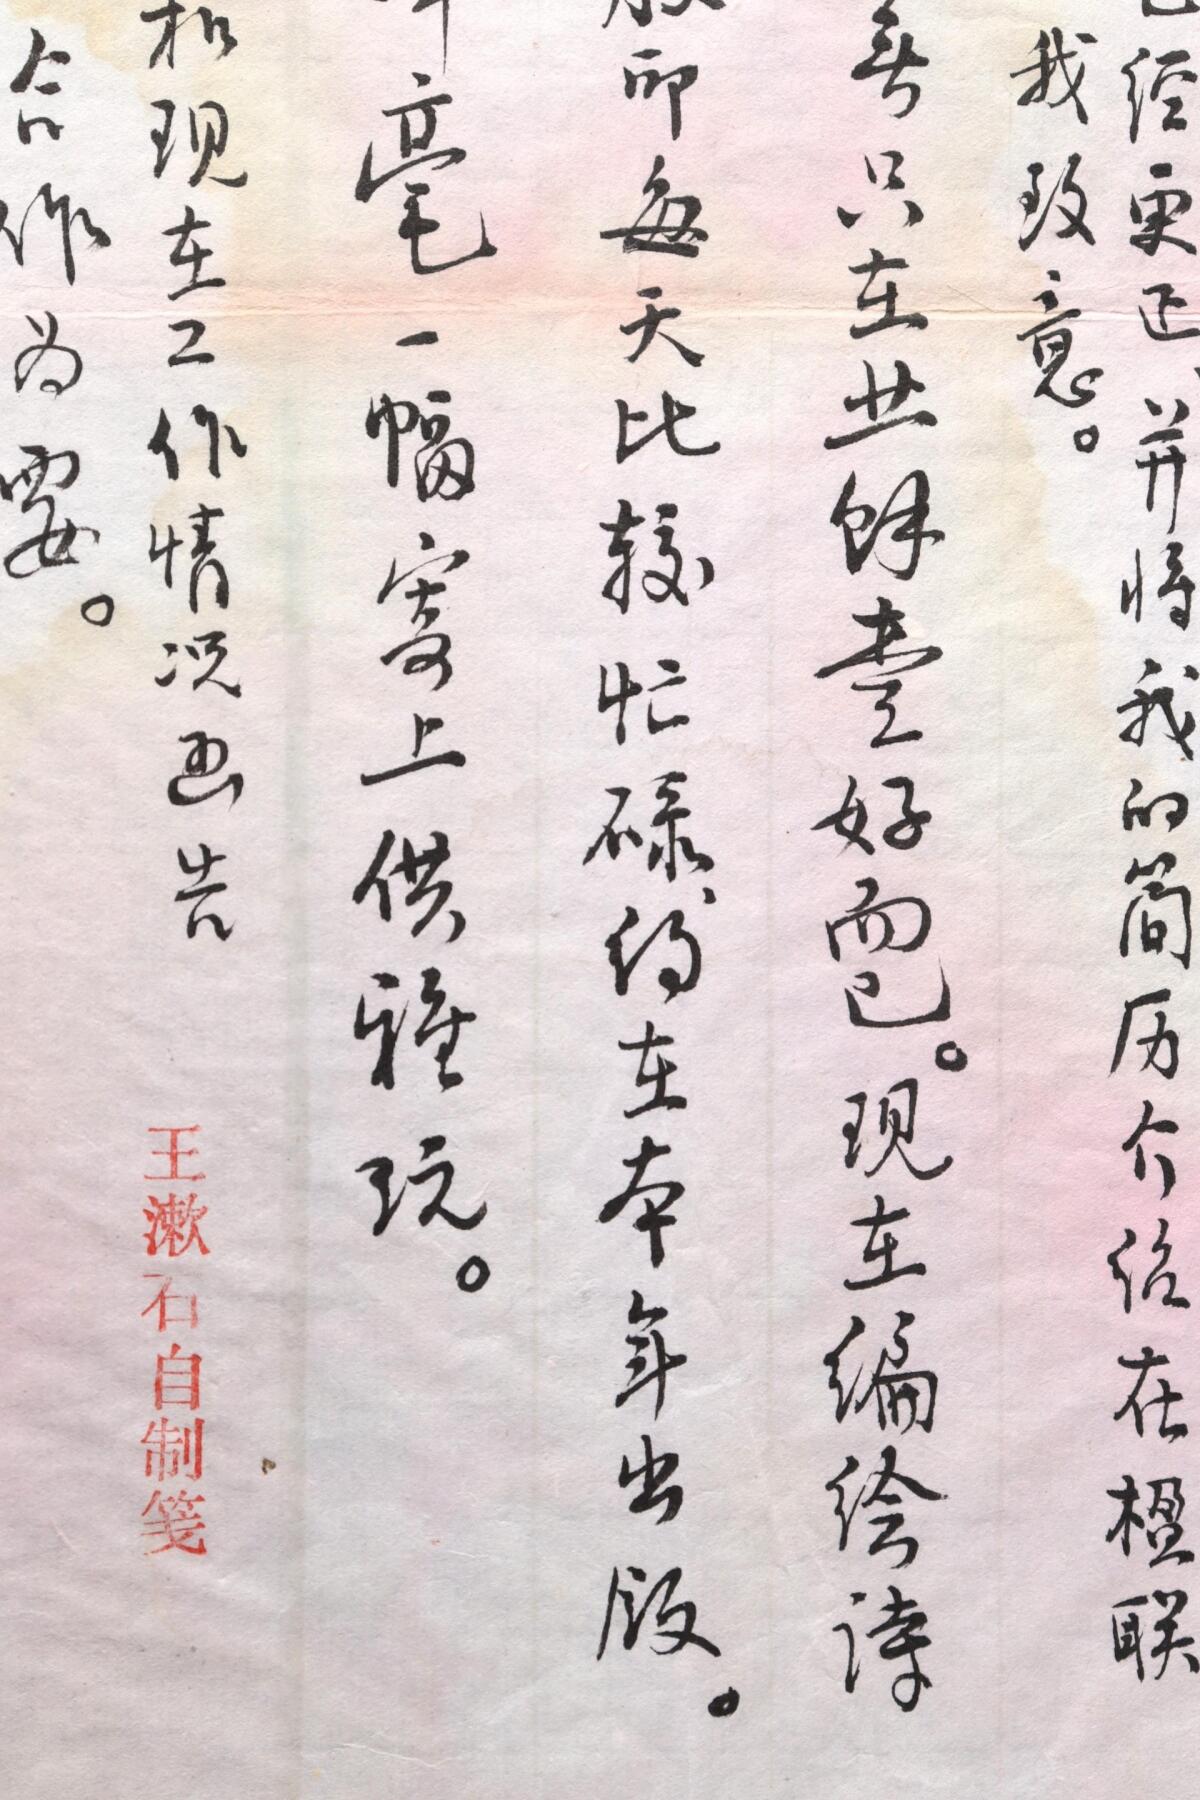 经更正、并将我的简历介绍在楹联
我致意。
只在业余爱好而已。现在编绘诗
印每天比较忙碌、约在本年出版。
毫一幅寄上供雅玩。
现在工作情况函告
合作为要。
王漱石自制笺